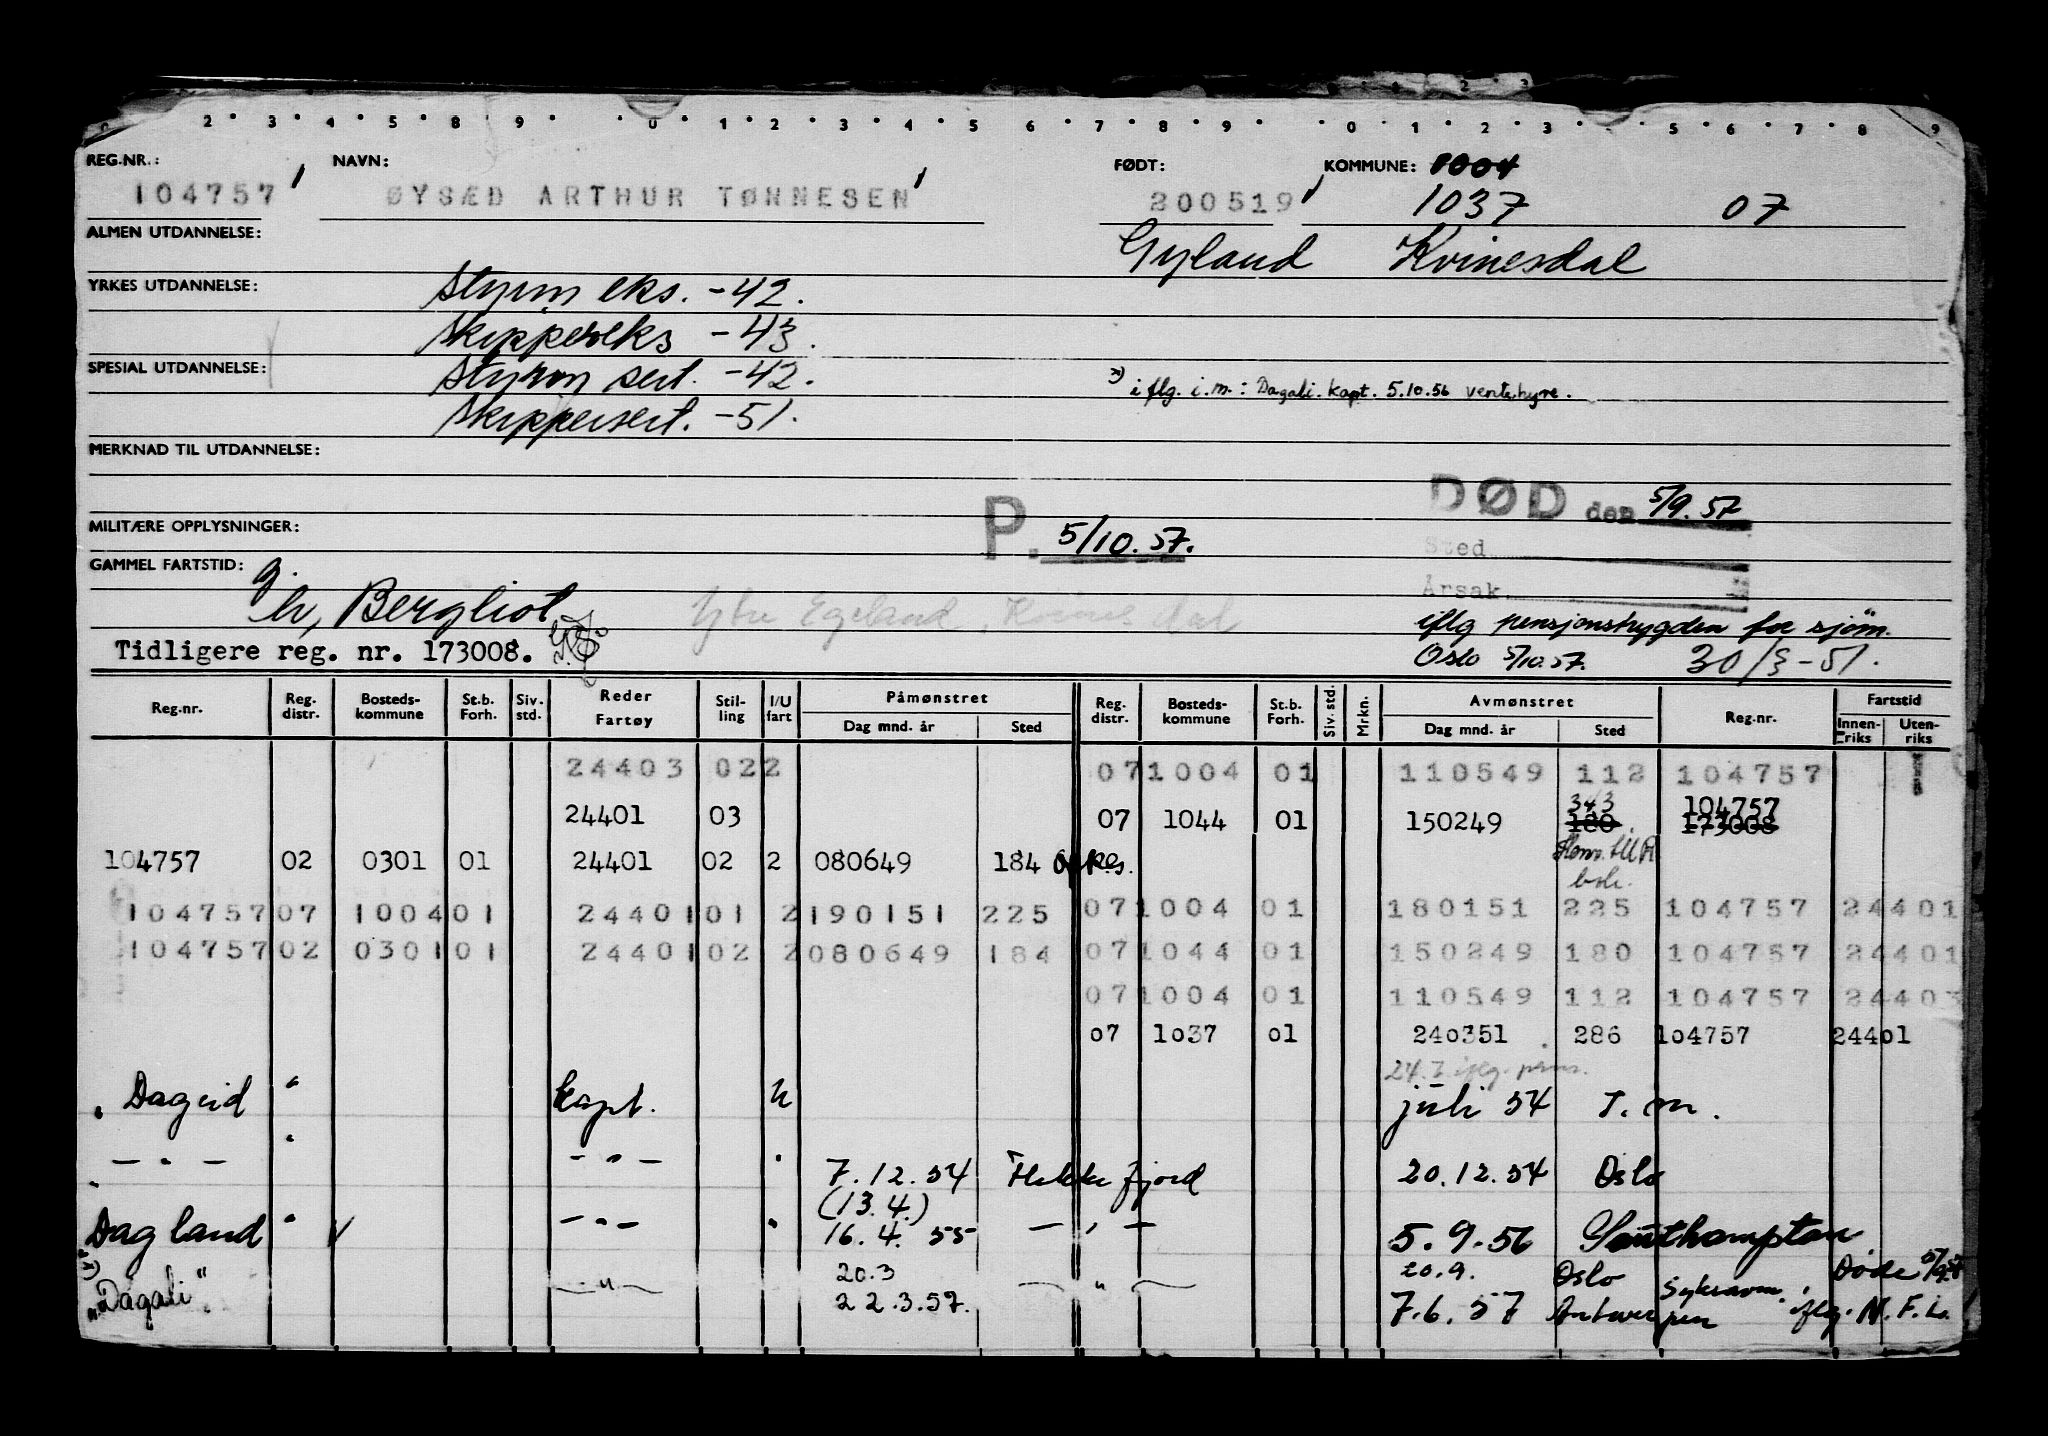 2 3 4 5 8 9 0 1 2 3 4 5 6 7 8 9 0 1 2 3 5 6 7 8 9
REG.NR.: NAVN: FØDT: KOMMUNE: 1004
104757 ØYSÆD ARTHUR TØNNESEN 200519 1037 07
ALMEN UTDANNELSE: Gyland Kvinesdal
YRKES UTDANNELSE: Styrm eks. -42.
Skippereks -43.
SPESIAL UTDANNELSE: Styrm sert. -42.
x) iflg. i.m.: Dagali. kapt. 5.10.56 ventehyre.
Skippersert. -51.
MERKNAD TIL UTDANNELSE:
DØD den 5/9.57
MILITÆRE OPPLYSNINGER: P. 5/10.57.
Sted
GAMMEL FARTSTID: g.
Årsak
h, Bergliot Ytre Egeland, Kvinesdal
iflg pensjonstrygden for sjøm.
Tidligere reg. nr. 173008. Oslo 5/10.57. 30/3-51.
Reg.nr. Reg. distr. Bosteds- kommune St.b. Forh. Siv. std. Reder Fartøy Stil- ling I/U fart Påmønstret Dag mnd. år Sted Reg. distr. Bosteds- kommune St.b. Forh. Siv. std. Mrkn. Avmønstret Dag mnd. år Sted Reg.nr. Fartstid Innen- riks Uten- riks
24403 02 2 07 1004 01 110549 112 104757
343 104757
24401 03 07 1044 01 150249 180 173008
104757 02 0301 01 24401 02 2 080649 184
104757 07 1004 01 24401 01 2 190151 225 07 1004 01 180151 225 104757 24401
104757 02 0301 01 24401 02 2 080649 184 07 1044 01 150249 180 104757 24401
07 1004 01 110549 112 104757 24403
07 1037 01 240351 286 104757 24401
Dageid " kapt. u juli 54 T.m.
— " — " — " — " 7.12.54 Flekkefjord 20.12.54 Oslo
(13.4.)
Dagland " — " — " 16.4.55 — " — 5.9.56 Southampton
x) 20.3 20.9. Oslo Døde 5/9.57
"Dagali". — " — 22.3.57. — " — 7.6.57 Antwerpen iflg. N.F.L.